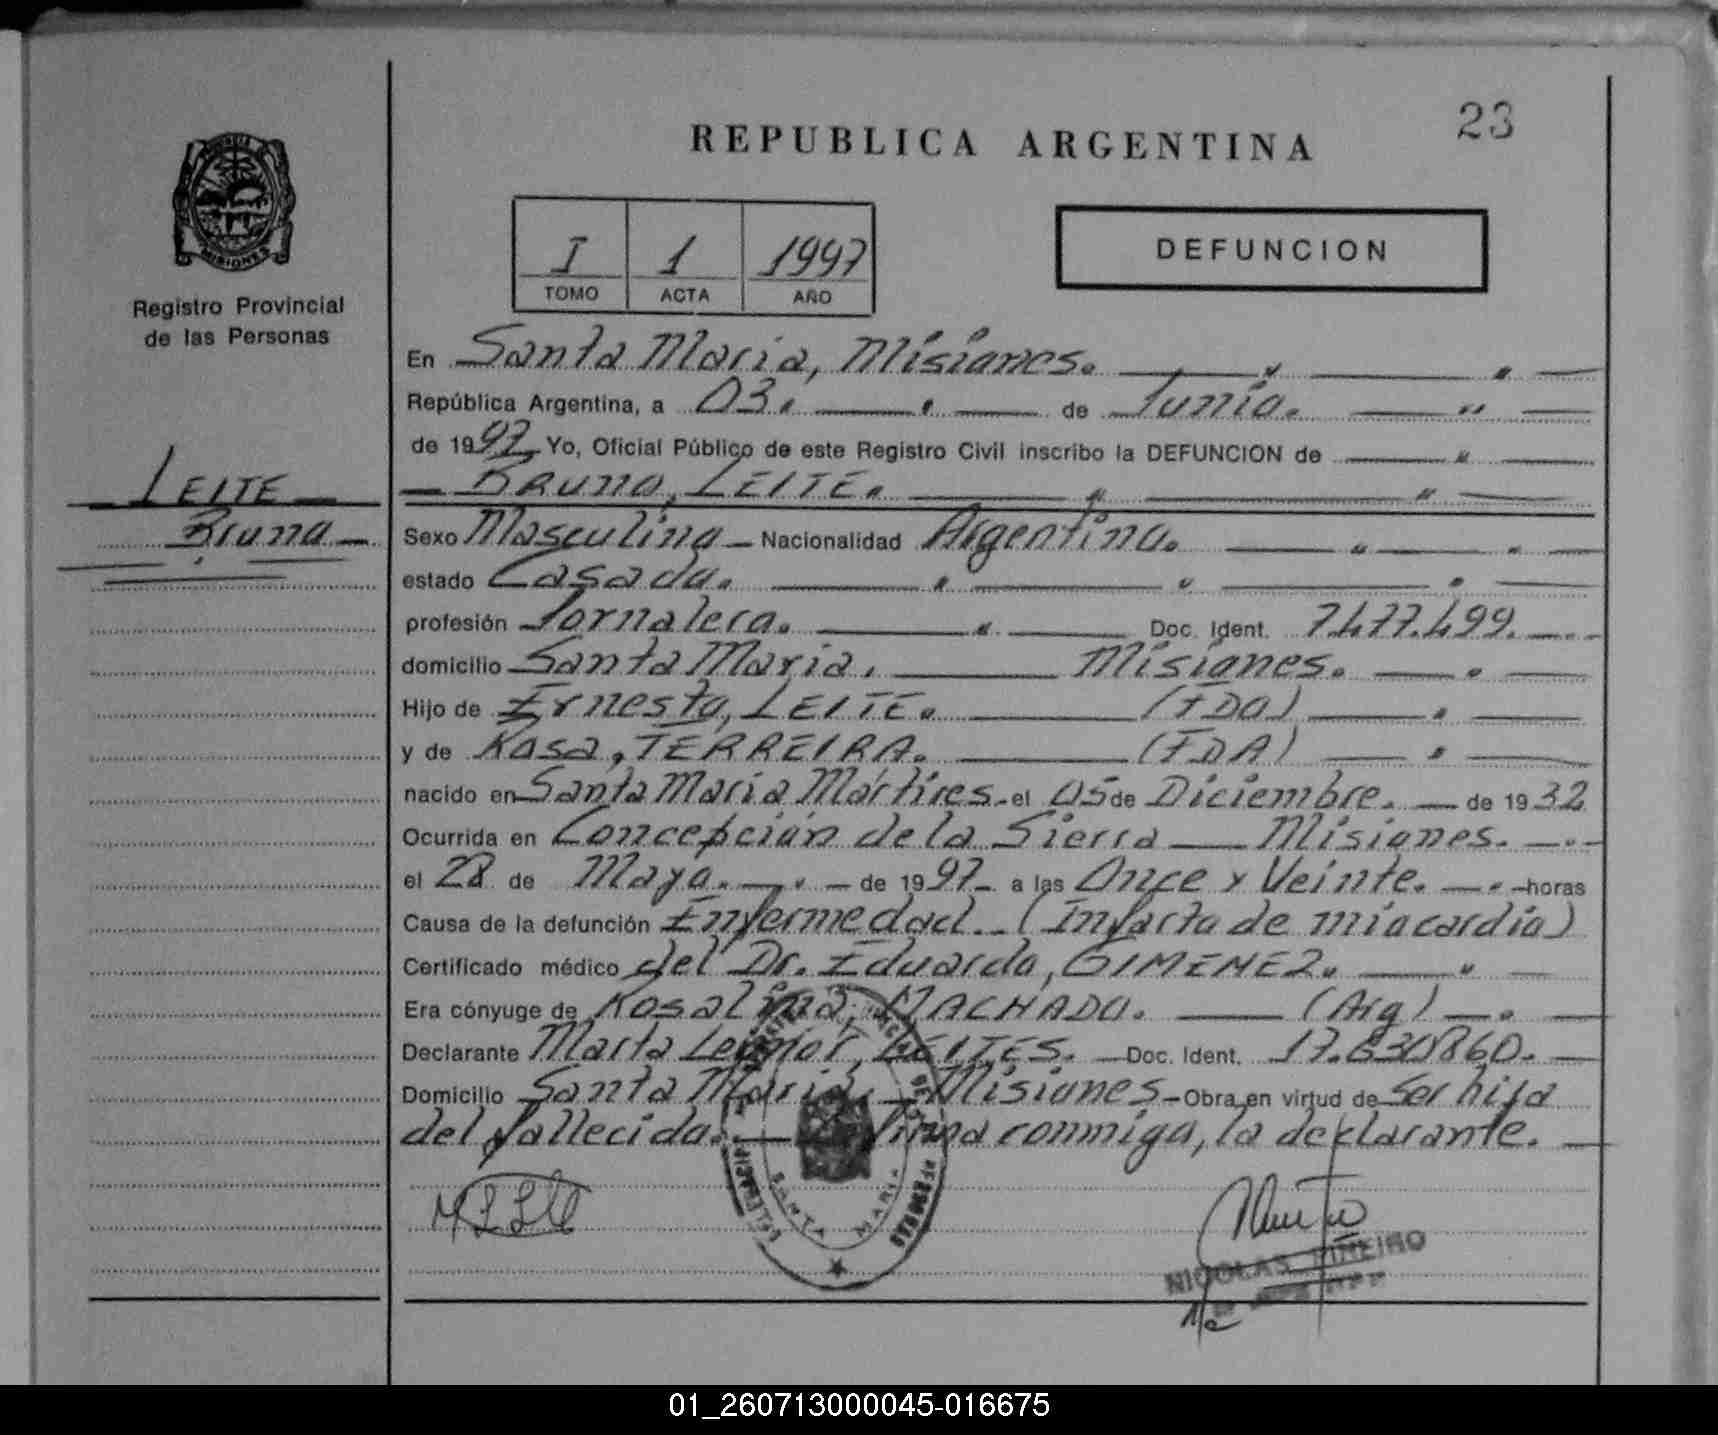 23
REPUBLICA ARGENTINA
I 1 1997
TOMO ACTA AÑO
DEFUNCION
MISIONES
Registro Provincial
de las Personas
LEITE
Bruno
En Santa Maria, Misiones.
República Argentina, a 03. de Junio.
de 1997 Yo, Oficial Público de este Registro Civil inscribo la DEFUNCION de
Bruno, LEITE.
Sexo Masculino Nacionalidad Argentino.
estado Casado.
profesión Jornalero. Doc. Ident. 7.477.499.
domicilio Santa Maria, Misiones.
Hijo de Ernesto, LEITE. (FDO)
y de Rosa, TERREIRA. (FDA)
nacido en Santa Maria Mártires el 05 de Diciembre. de 1932
Ocurrida en Concepción de la Sierra Misiones.
el 28 de Mayo. de 1997 a las Once y Veinte. horas
Causa de la defunción Enfermedad. (Infarto de miocardio)
Certificado médico del Dr. Eduardo, GIMENEZ.
Era cónyuge de Rosalina, MACHADO. (Arg)
Declarante Marta Leonor, LEITES. Doc. Ident. 17.630860.
Domicilio Santa Maria, Misiones Obra en virtud de Ser hija
del fallecido. Firma conmigo, la declarante.
SANTA MARIA
NICOLAS PIÑEIRO
01_260713000045-016675